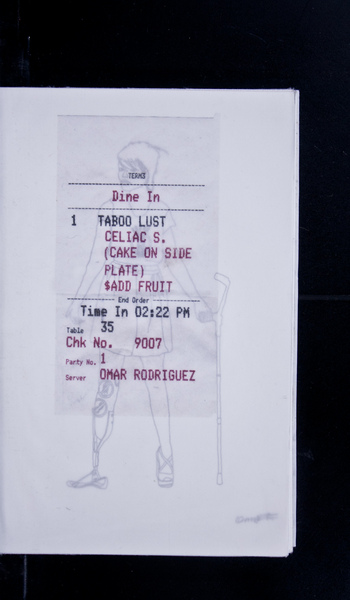 TERM3
Dine In
1 TABOO LUST
CELIAC S.
(CAKE ON SIDE
PLATE)
$ADD FRUIT
End Order
Time In 02:22 PM
Table 35
Chk No. 9007
Party No. 1
Server OMAR RODRIGUEZ